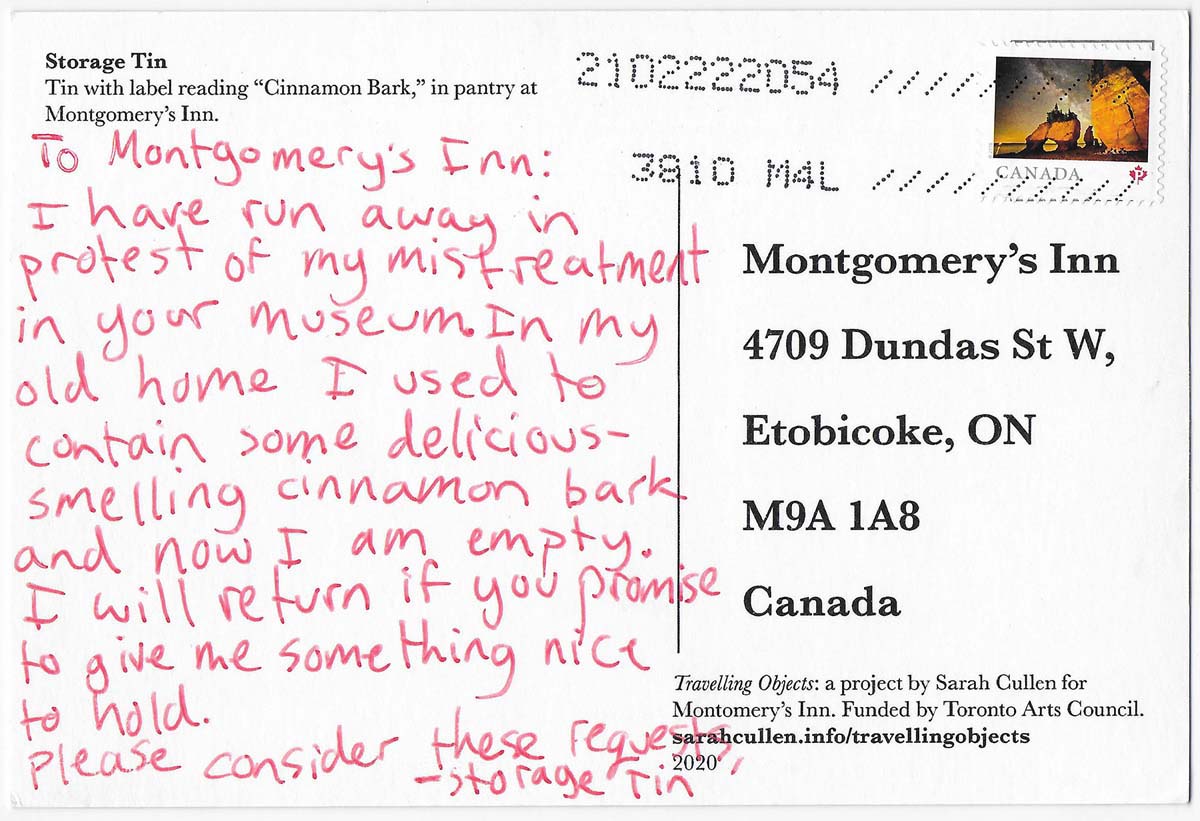 Storage Tin
Tin with label reading “Cinnamon Bark,” in pantry at
Montgomery’s Inn.
2102222054
3810 M4L
CANADA
P
To Montgomery's Inn:
I have run away in
protest of my mistreatment
in your museum. In my
old home I used to
contain some delicious-
smelling cinnamon bark
and now I am empty.
I will return if you promise
to give me something nice
to hold.
Please consider these requests,
-Storage Tin
Montgomery’s Inn
4709 Dundas St W,
Etobicoke, ON
M9A 1A8
Canada
Travelling Objects: a project by Sarah Cullen for
Montomery’s Inn. Funded by Toronto Arts Council.
sarahcullen.info/travellingobjects
2020